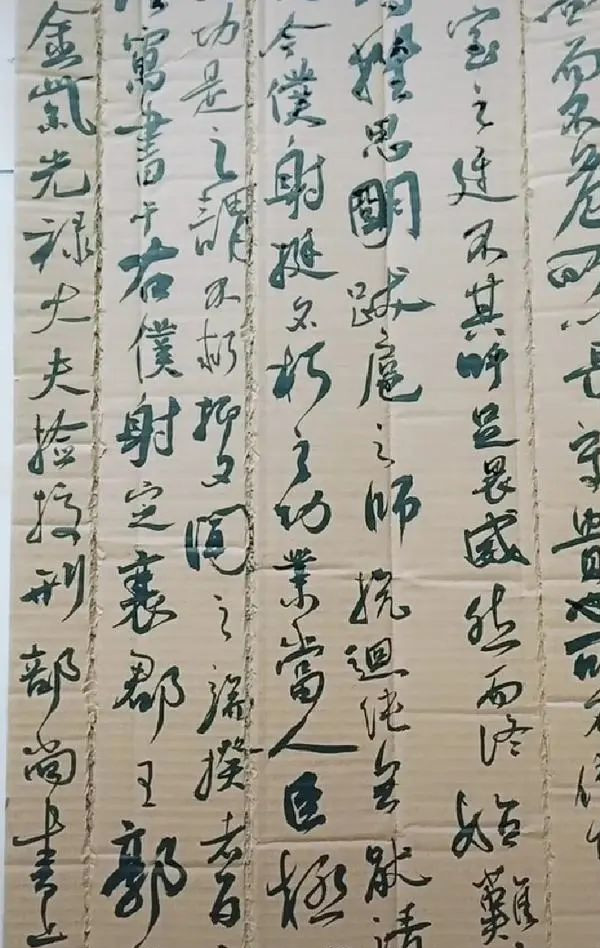 金紫光祿大夫檢校刑部尚書上
寓書于右僕射定襄郡王郭
功是之謂不朽抑又聞之端揆者百
今僕射挺不朽之功業當人臣極
思明跋扈之師抗迴紇無猒請
室之廷不其吁足畏然而終始難
而不危所以長守貴也可不